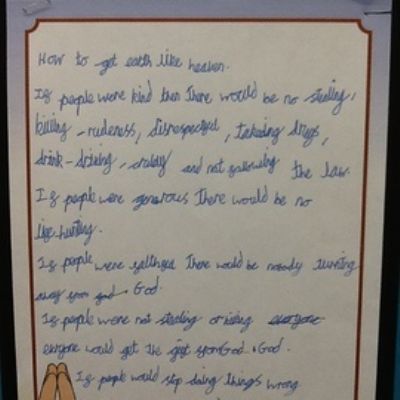 How to get earth like heaven.
If people were kind then there would be no stealing,
killing - rudeness, disrespectful, takeing drugs,
drink-driving, and not following the law.
If people were generous there would be no
like hunting.
If people were there would be nobody turning
away from god. God.
If people were not stealing or everyone
everyone would get the gift from God. God.
If people would stop doing things wrong